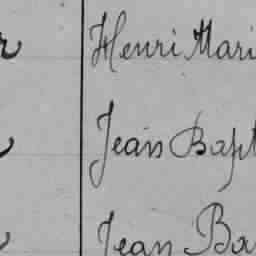 Henri Mari
Jean Bapt
Jean Ba